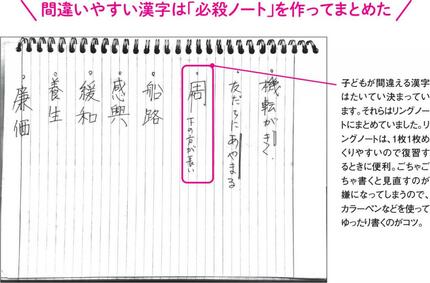 間違いやすい漢字は「必殺ノート」を作ってまとめた
機転がきく
友だちにあやまる
周
下の方が長い
船路
感興
緩和
養生
廉価
子どもが間違える漢字
はたいてい決まってい
ます。それらはリングノー
トにまとめていました。リ
ングノートは、1枚1枚め
くりやすいので復習す
るときに便利。ごちゃご
ちゃ書くと見直すのが
嫌になってしまうので、
カラーペンなどを使って
ゆったり書くのがコツ。